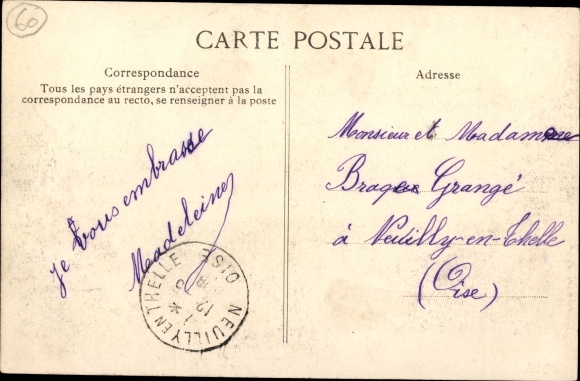 60
CARTE POSTALE
Correspondance
Tous les pays étrangers n'acceptent pas la
correspondance au recto, se renseigner à la poste
Je vous embrasse
Madeleine
NEUILLY EN THELLE OISE
12
Adresse
Monsieur et Madame
Braque Grangé
à Neuilly-en-Thelle
(Oise)